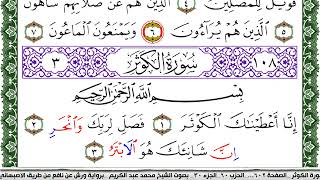 فَوَيْلٌ لِّلْمُصَلِّينَ ٤ الَّذِينَ هُمْ عَن صَلَاتِهِمْ سَاهُونَ
٥ الَّذِينَ هُمْ يُرَآءُونَ ٦ وَيَمْنَعُونَ الْمَاعُونَ ٧
٣ سُورَةُ الْكَوْثَرِ ١٠٨
بِسْمِ اللَّهِ الرَّحْمَٰنِ الرَّحِيمِ
إِنَّا أَعْطَيْنَاكَ الْكَوْثَرَ ١ فَصَلِّ لِرَبِّكَ وَانْحَرِ ٢
اِنَّ شَانِئَكَ هُوَ الَابْتَرُ ٣
سورة الكوثر الصفحة ٦٠٢ الحزب ٦٠ الجزء ٣٠ بصوت الشيخ محمد عبد الكريم برواية ورش عن نافع من طريق الاصبهاني